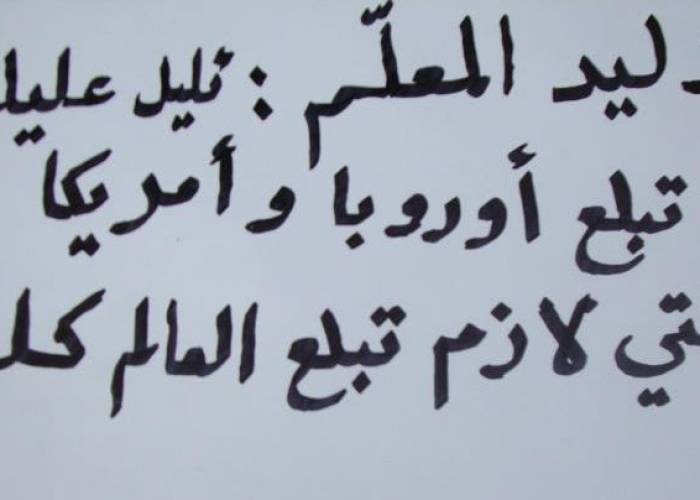 ليد المعلّم : ئليل عليك
تبلع أوروبا وأمريكا
تي لازم تبلع العالم كل